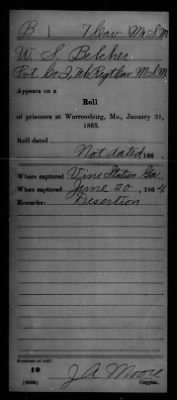 B | 7 Cav | Mo S M
W. S. Belcher
Pvt Co I, 7th Regt Cav M.S.M.
Appears on a
Roll
of prisoners at Warrensburg, Mo., January 21,
1865.
Roll dated
Not dated, 186 .
Where captured Vine Station Ga
When captured June 20, 1864
Remarks: Desertion
Number of roll:
10
J A Moore
Copyist.